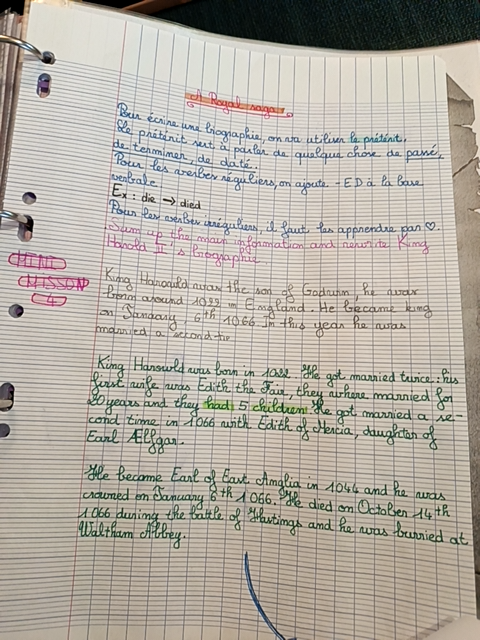 A Royal saga
Pour écrire une biographie, on va utiliser le prétérit.
Le prétérit sert à parler de quelque chose de passé,
de terminer, de daté.
Pour les verbes réguliers, on ajoute -ED à la base
verbale
Ex : die → died
Pour les verbes irréguliers, il faut les apprendre par ♡.
Sum up the main information and rewrite King
Harold II's biographie
MINI
MISSION
4
King Harowld was the son of Godwin, he was
born around 1022 in England. He became king
on January, 6th 1066 In this year he was
married a second tie
King Harowld was born in 1022. He got married twice: his
first wife was Edith the Fair, they where married for
20 years and they had 5 children. He got married a se-
cond time in 1066 with Edith of Mercia, daughter of
Earl Ælfgar.
He became Earl of East Anglia in 1044 and he was
crowned on January 6th 1066. He died on October 14th
1066 during the battle of Hastings and he was burried at
Waltham Abbey.